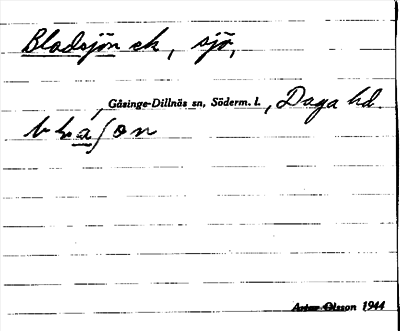 Bladsjön ek, sjö,
Gåsinge-Dillnäs sn, Söderm. l., Daga hd.
Artur Olsson 1944